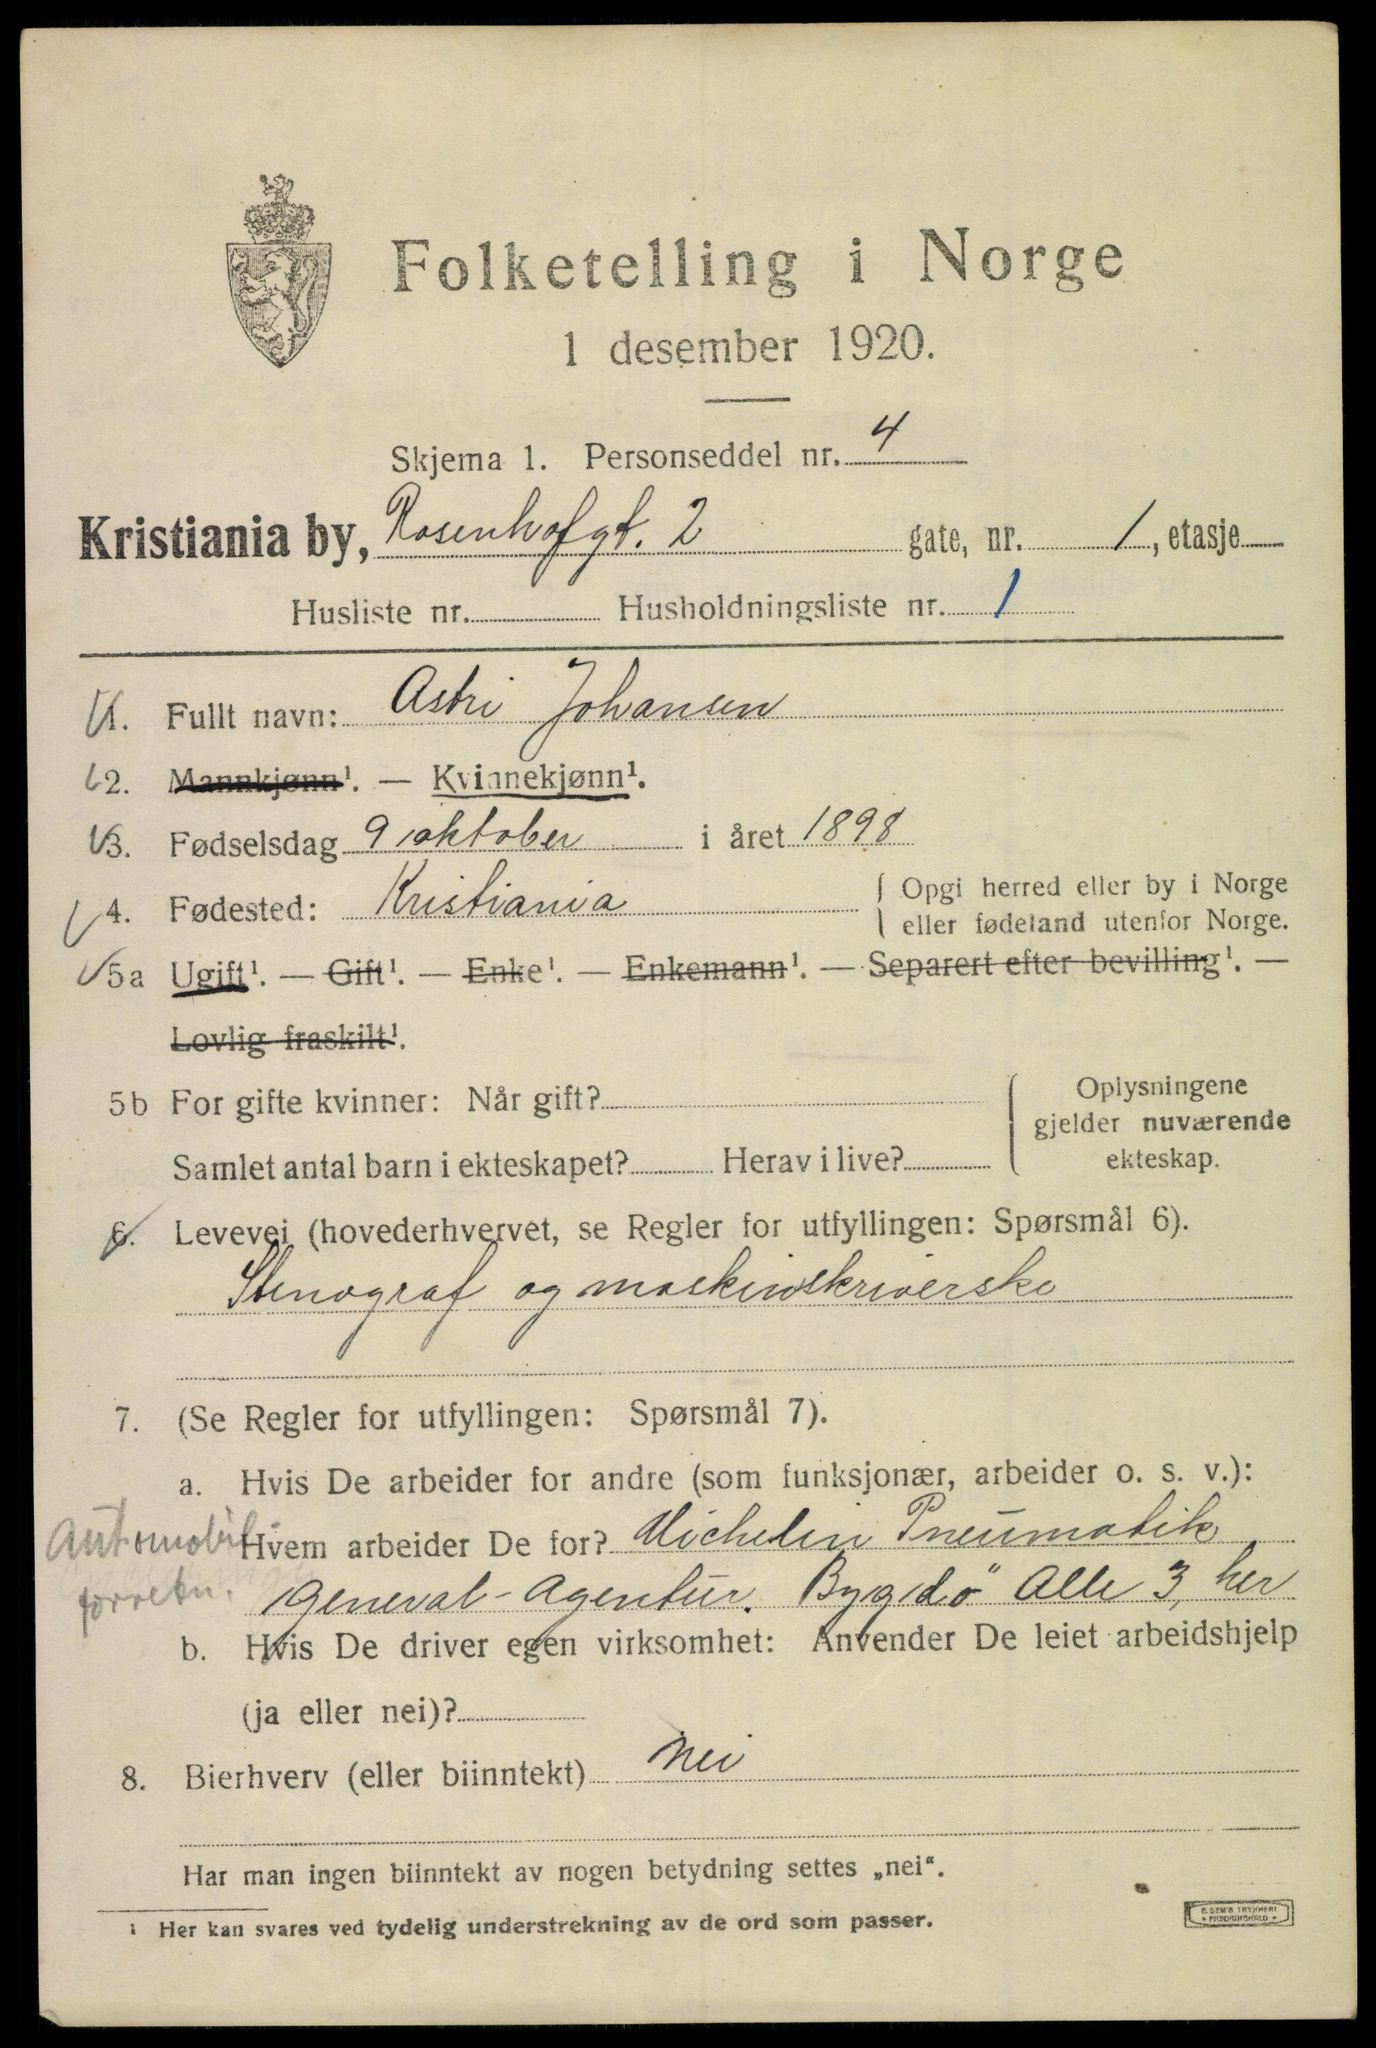 Folketelling i Norge
1 desember 1920.
Skjema 1. Personseddel nr. 4
Kristiania by, Rosenhofgt. 2 gate, nr. 1, etasje
Husliste nr. Husholdningsliste nr. 1
1. Fullt navn: Astri Johansen
2. Mannkjønn¹. — Kvinnekjønn¹.
3. Fødselsdag 9 oktober i året 1898
4. Fødested: Kristiania { Opgi herred eller by i Norge
eller fødeland utenfor Norge.
5a Ugift¹. — Gift¹. — Enke¹. — Enkemann¹. — Separert efter bevilling¹. —
Lovlig fraskilt¹.
5b For gifte kvinner: Når gift?
Samlet antal barn i ekteskapet? Herav i live?
Oplysningene
gjelder nuværende
ekteskap.
6. Levevei (hovederhvervet, se Regler for utfyllingen: Spørsmål 6).
Stenograf og maskinskriverske
7. (Se Regler for utfyllingen: Spørsmål 7).
a. Hvis De arbeider for andre (som funksjonær, arbeider o. s. v.):
Automobil
forretn.
Hvem arbeider De for? Michelin Pneumatik
General-Agentur. Bygdö Alle 3, her
b. Hvis De driver egen virksomhet: Anvender De leiet arbeidshjelp
(ja eller nei)?
8. Bierhverv (eller biinntekt) Nei
Har man ingen biinntekt av nogen betydning settes „nei“.
¹ Her kan svares ved tydelig understrekning av de ord som passer.
E. SEM'S TRYKKERI
• FREDRIKSHALD •